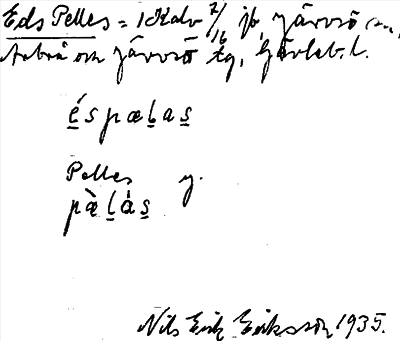 Eds Pelles = 1 Kalv 7/16 jb, Järvsö sn,
Arbrå och Järvsö tg, Gävleb. l.
é̱spæḻas̱
Pelles y.
pæ̀ḻás̱
Nils Erik Eriksson 1935.